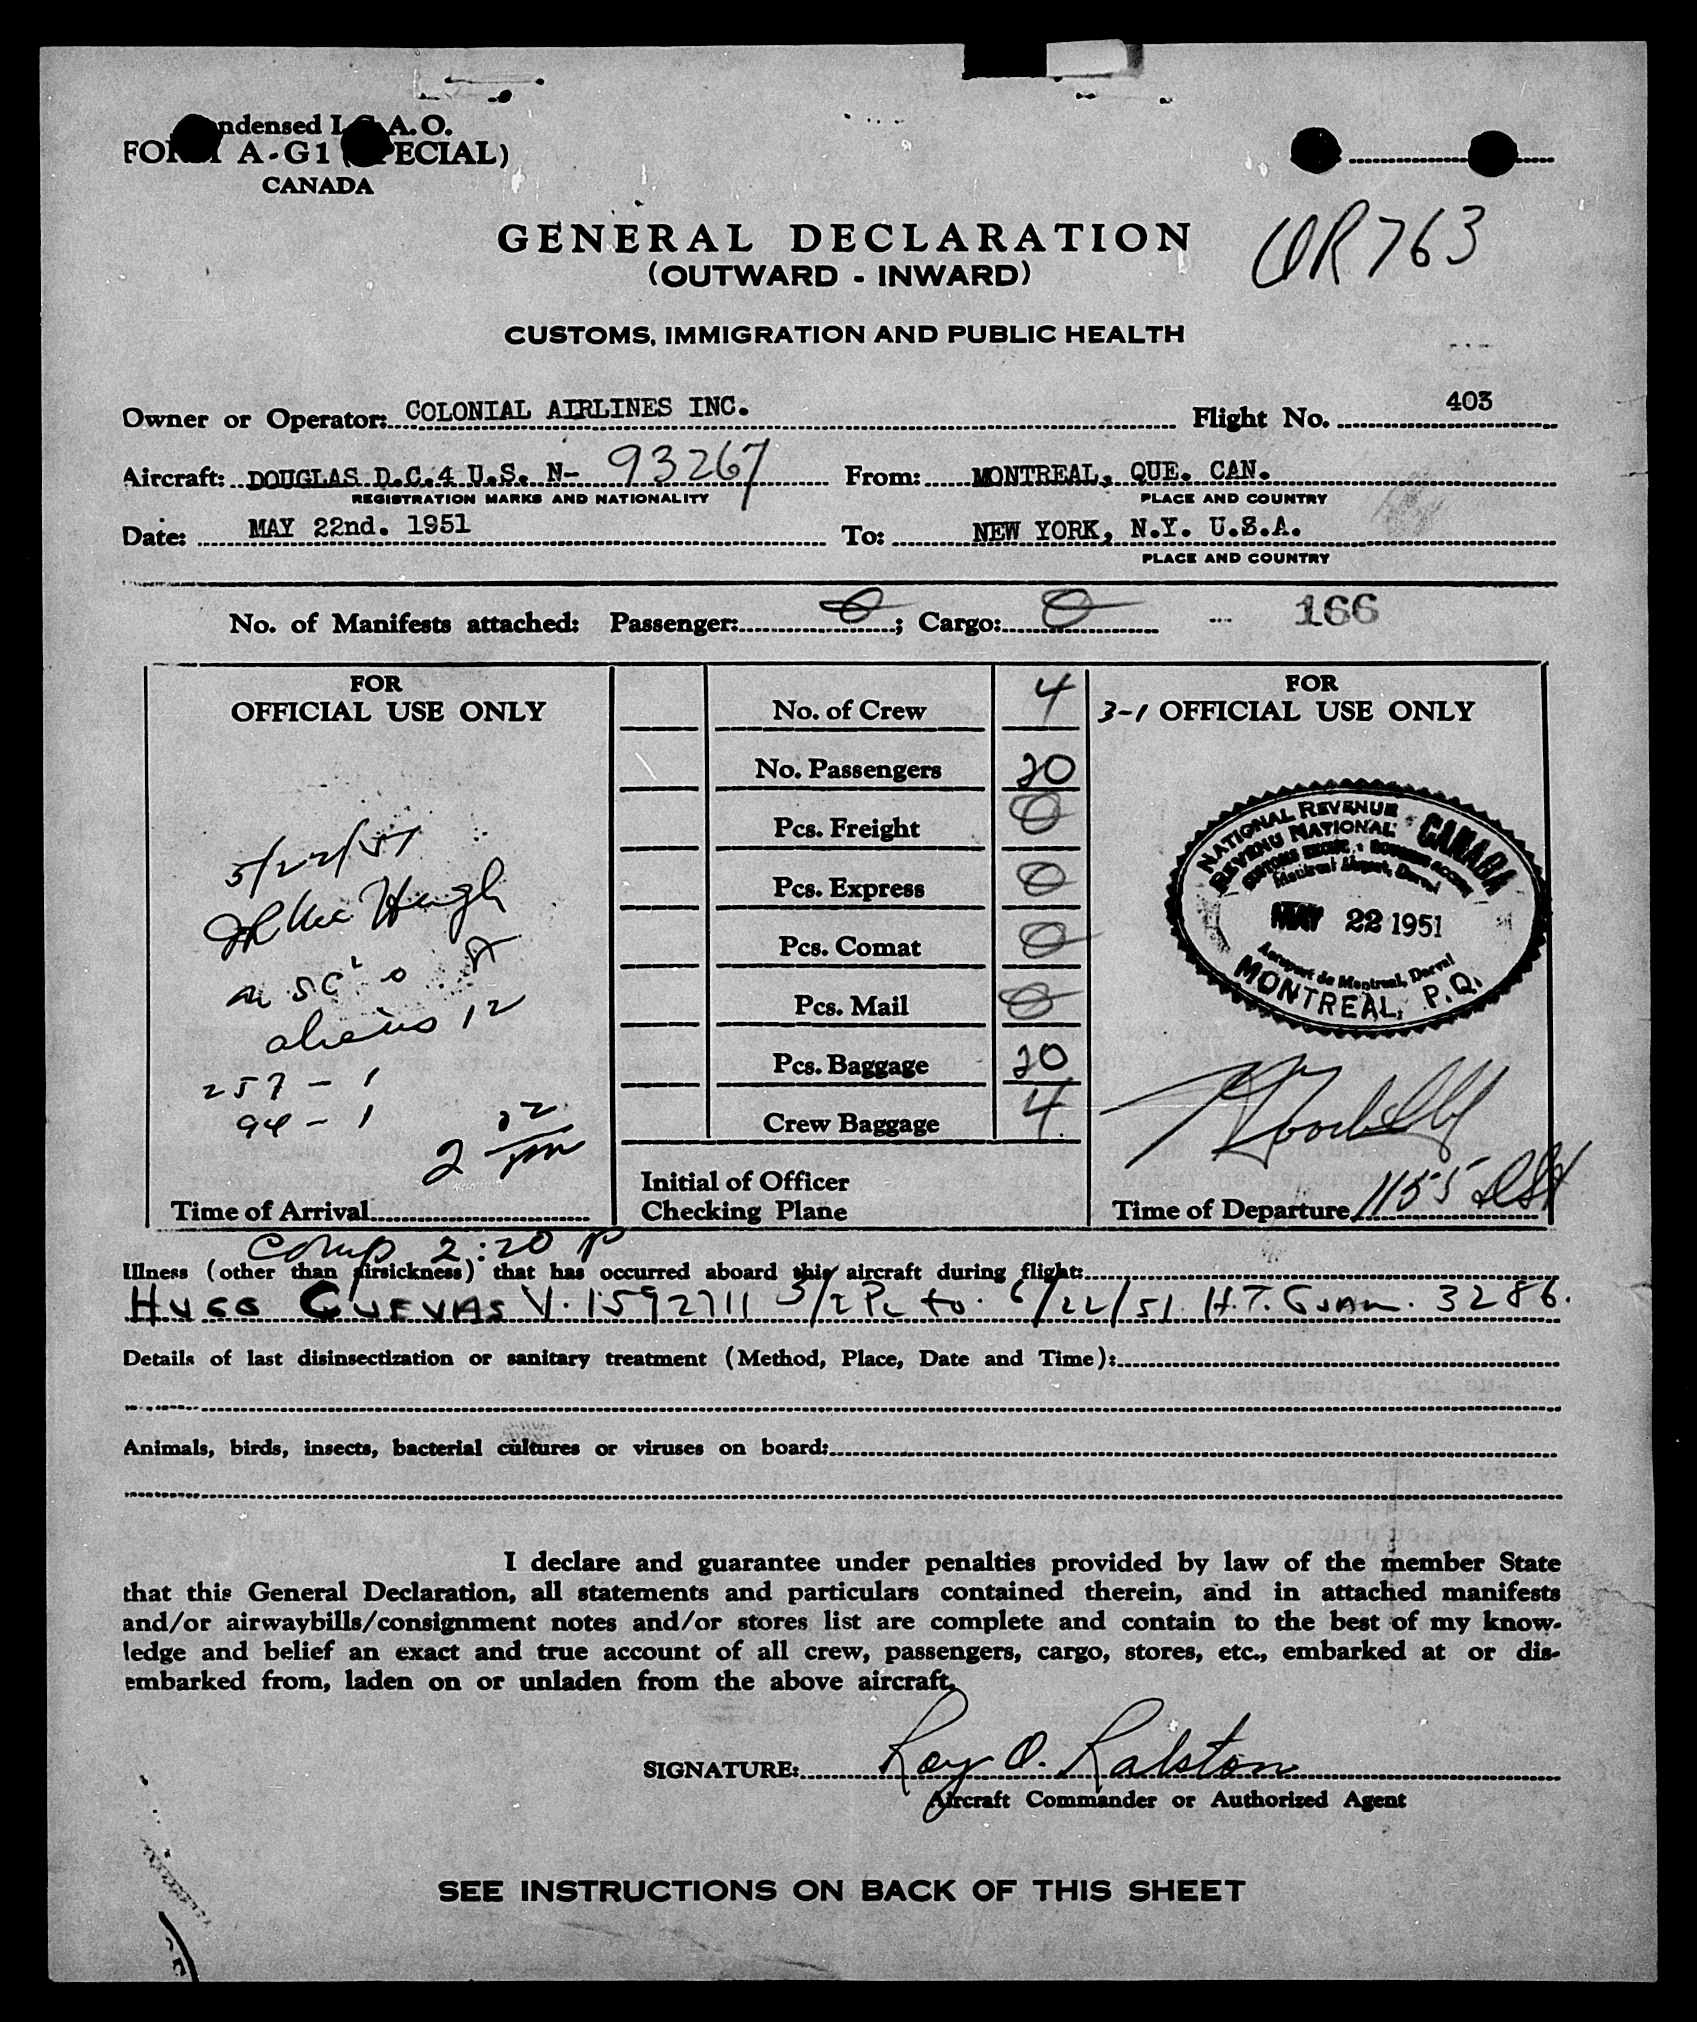 ndensed I.C.A.O.
FORM A-G1 (SPECIAL)
CANADA
QR763
GENERAL DECLARATION
(OUTWARD - INWARD)
CUSTOMS, IMMIGRATION AND PUBLIC HEALTH
Owner or Operator: COLONIAL AIRLINES INC. Flight No. 403
Aircraft: DOUGLAS D.C.4 U.S. N- 93267 From: MONTREAL, QUE. CAN.
REGISTRATION MARKS AND NATIONALITY PLACE AND COUNTRY
Date: MAY 22nd. 1951 To: NEW YORK, N.Y. U.S.A.
PLACE AND COUNTRY
No. of Manifests attached: Passenger: 0; Cargo: 0 166
FOR
OFFICIAL USE ONLY
5/22/51
Mc Hugh
aliens 12
257 - 1
94 - 1
2
Time of Arrival
No. of Crew 4
No. Passengers 20
Pcs. Freight 0
Pcs. Express 0
Pcs. Comat 0
Pcs. Mail 0
Pcs. Baggage 20
Crew Baggage 4
Initial of Officer
Checking Plane
FOR
3-1 OFFICIAL USE ONLY
NATIONAL REVENUE CANADA
REVENU NATIONAL
Montreal Airport, Dorval
MAY 22 1951
Aeroport de Montreal, Dorval
MONTREAL, P.Q.
Time of Departure 1155 DST
Comp 2:20 P
Illness (other than airsickness) that has occurred aboard this aircraft during flight:
HUGO CUEVAS V. 1592711 to 6/22/51 H.T. 3286.
Details of last disinsectization or sanitary treatment (Method, Place, Date and Time):
Animals, birds, insects, bacterial cultures or viruses on board:
I declare and guarantee under penalties provided by law of the member State
that this General Declaration, all statements and particulars contained therein, and in attached manifests
and/or airwaybills/consignment notes and/or stores list are complete and contain to the best of my know-
ledge and belief an exact and true account of all crew, passengers, cargo, stores, etc., embarked at or dis-
embarked from, laden on or unladen from the above aircraft.
SIGNATURE: Roy O. Ralston
Aircraft Commander or Authorized Agent
SEE INSTRUCTIONS ON BACK OF THIS SHEET